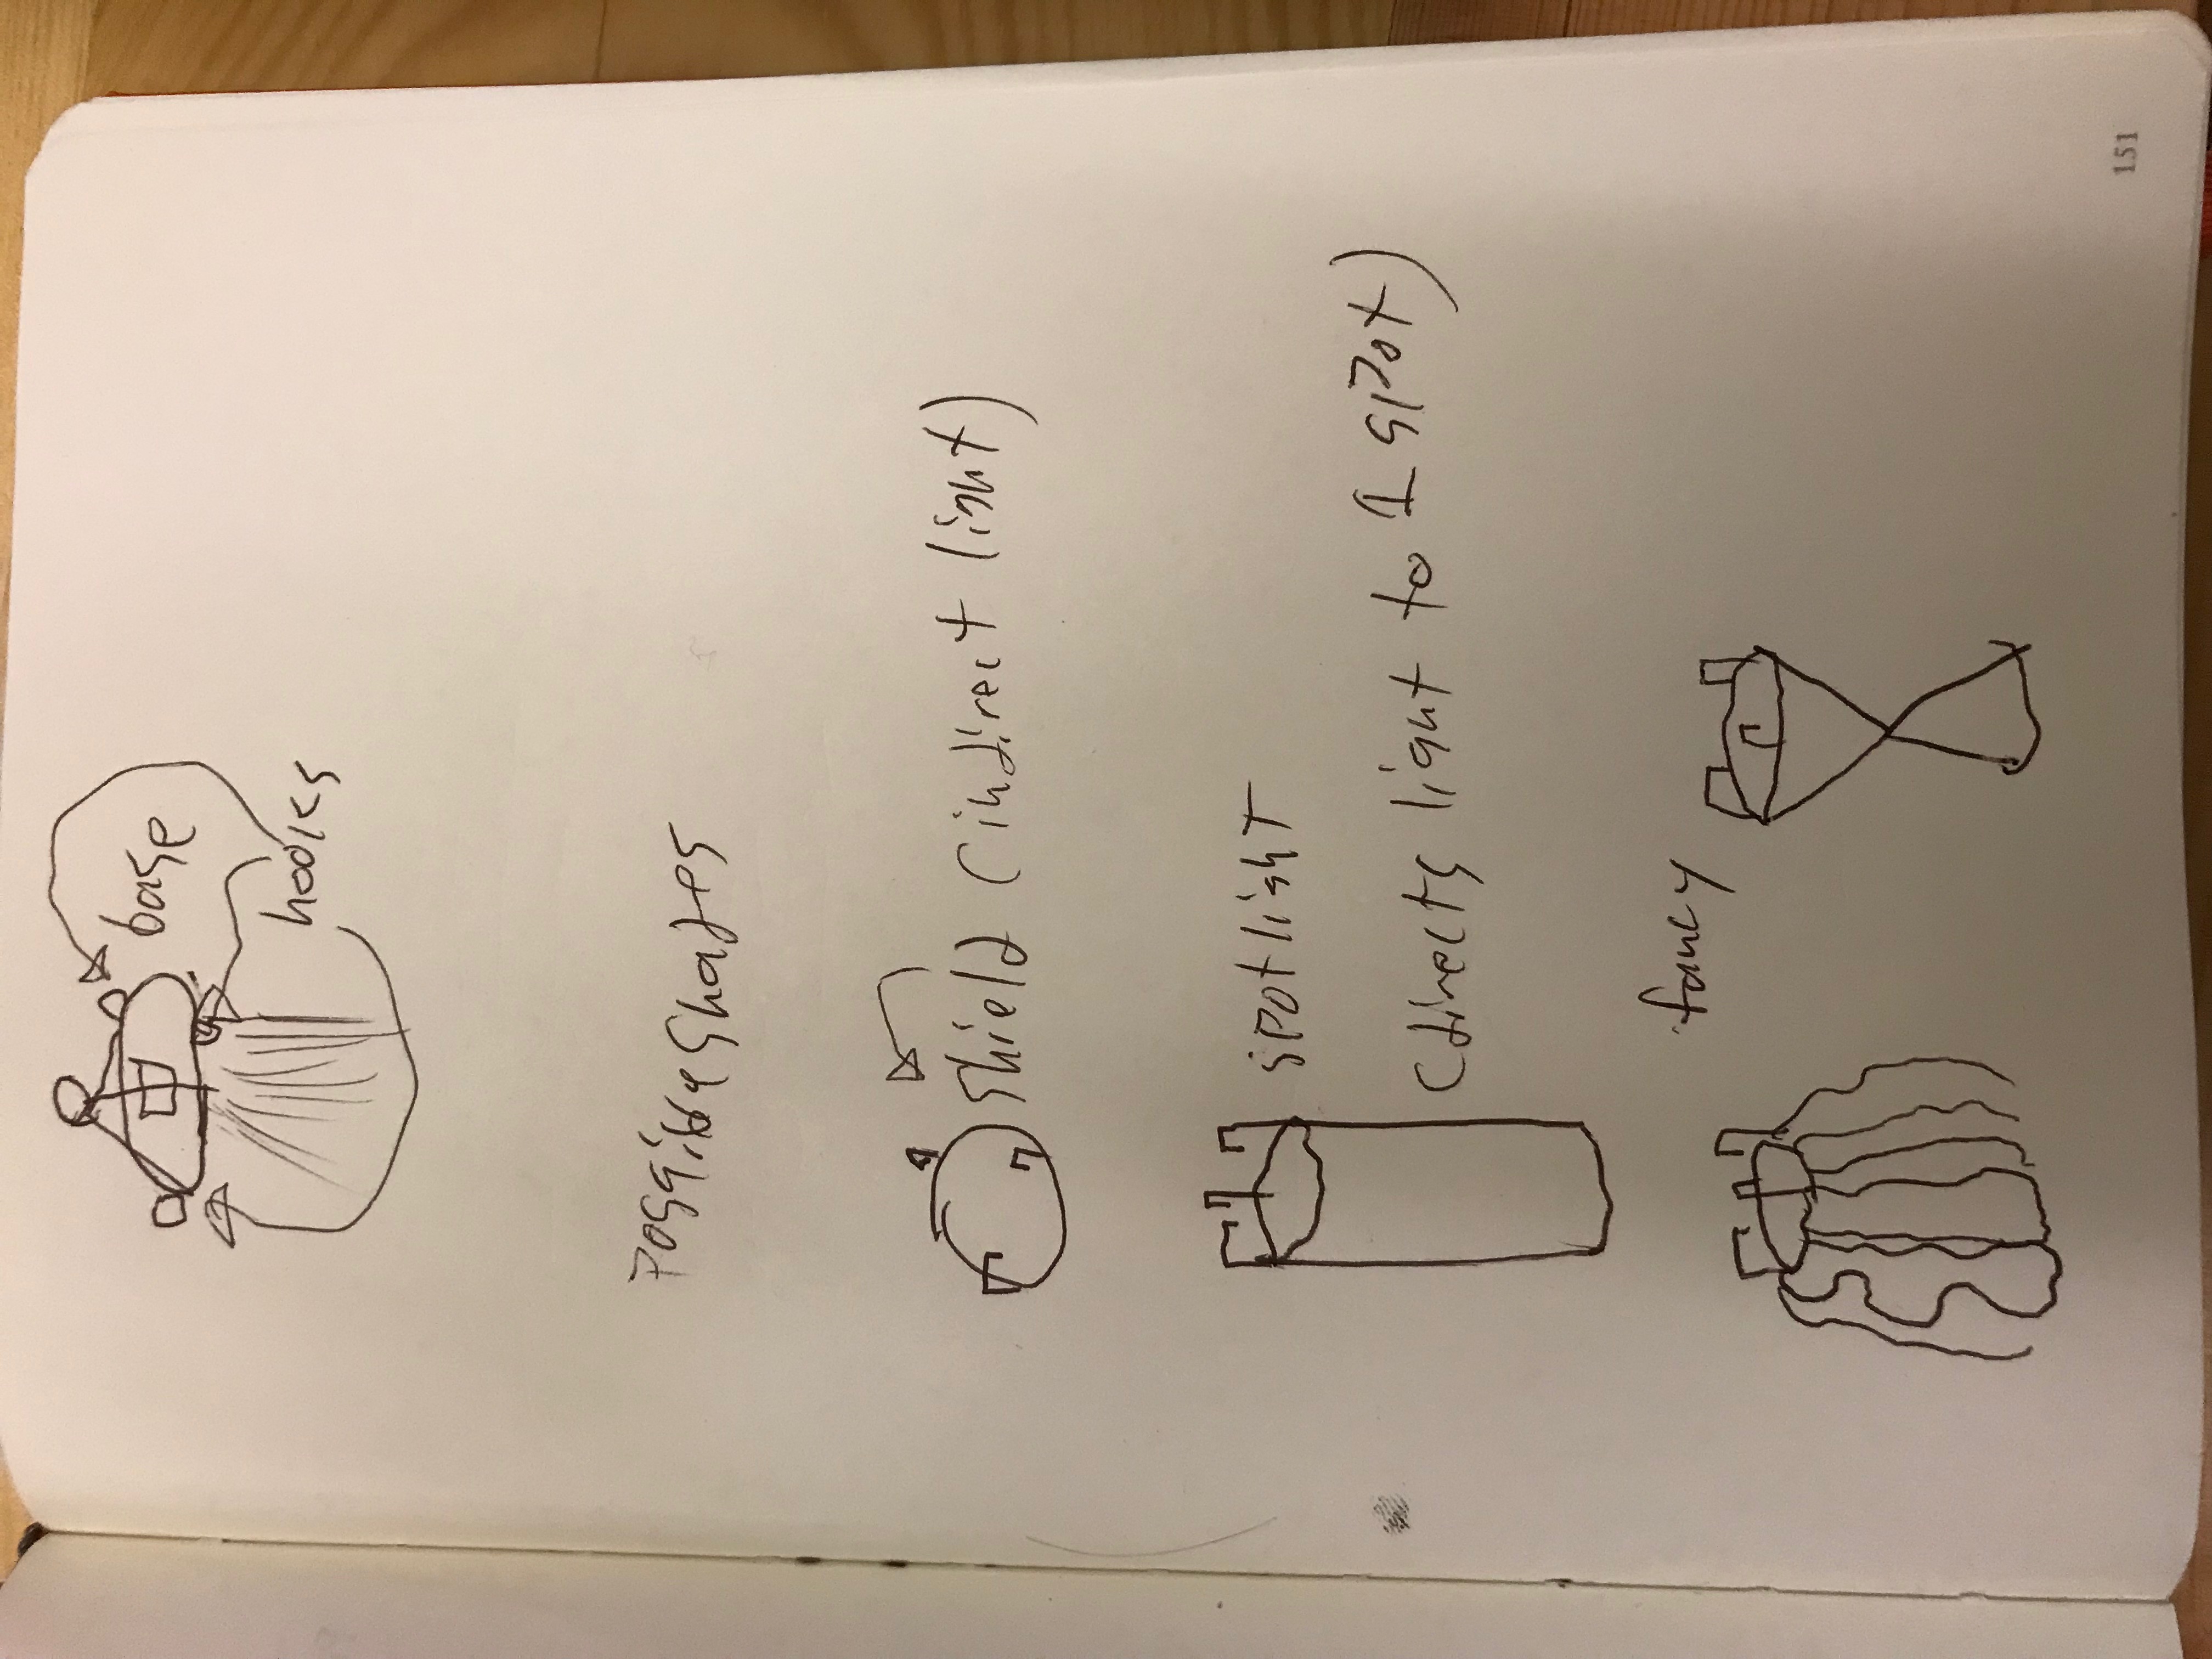 base
hooks
Possible Shades
Shield (indirect light)
spotlight
(directs light to 1 spot)
fancy
151